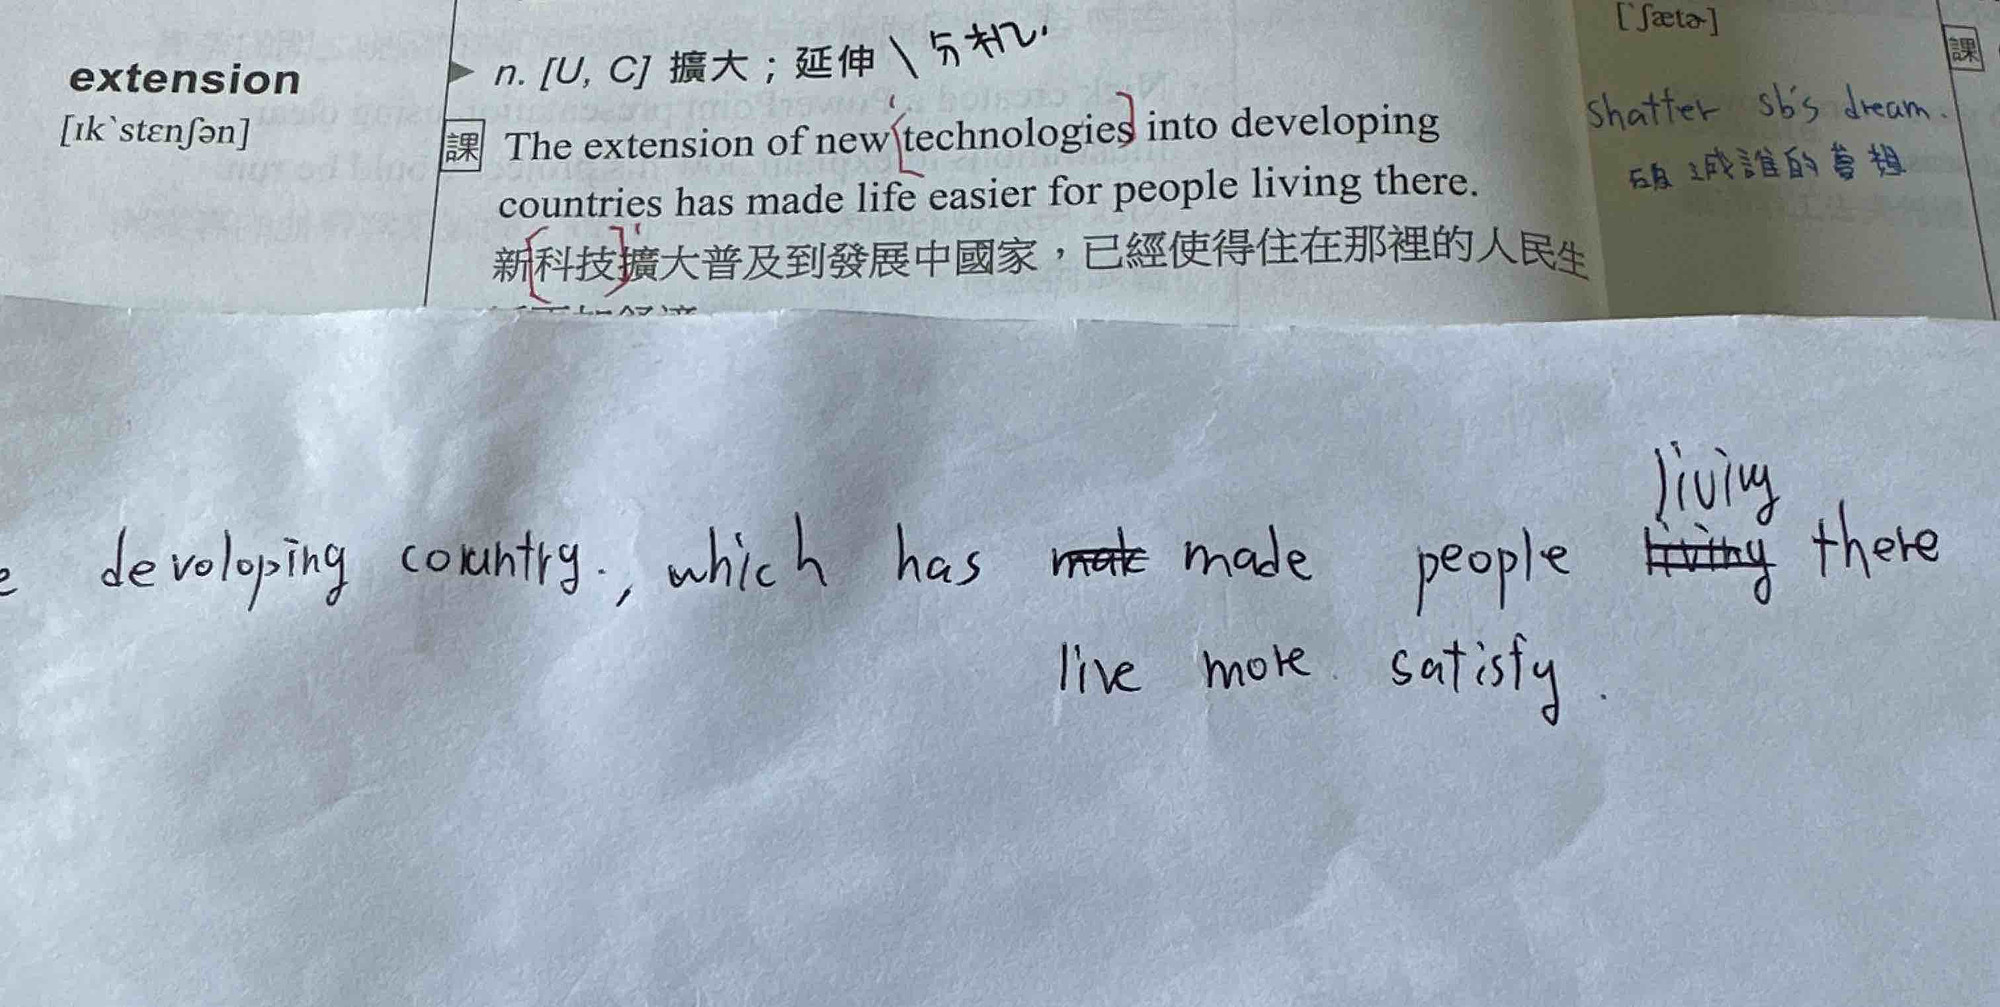 extension
[ɪkˋstɛnʃən]
n. [U, C] 擴大；延伸 \ 分機.
課 The extension of new technologies into developing
countries has made life easier for people living there.
新科技擴大普及到發展中國家，已經使得住在那裡的人民生
[ˋʃætɚ]
課
shatter sb's dream.
誰的夢想
devoloping country., which has made people living there
live more satisfy.